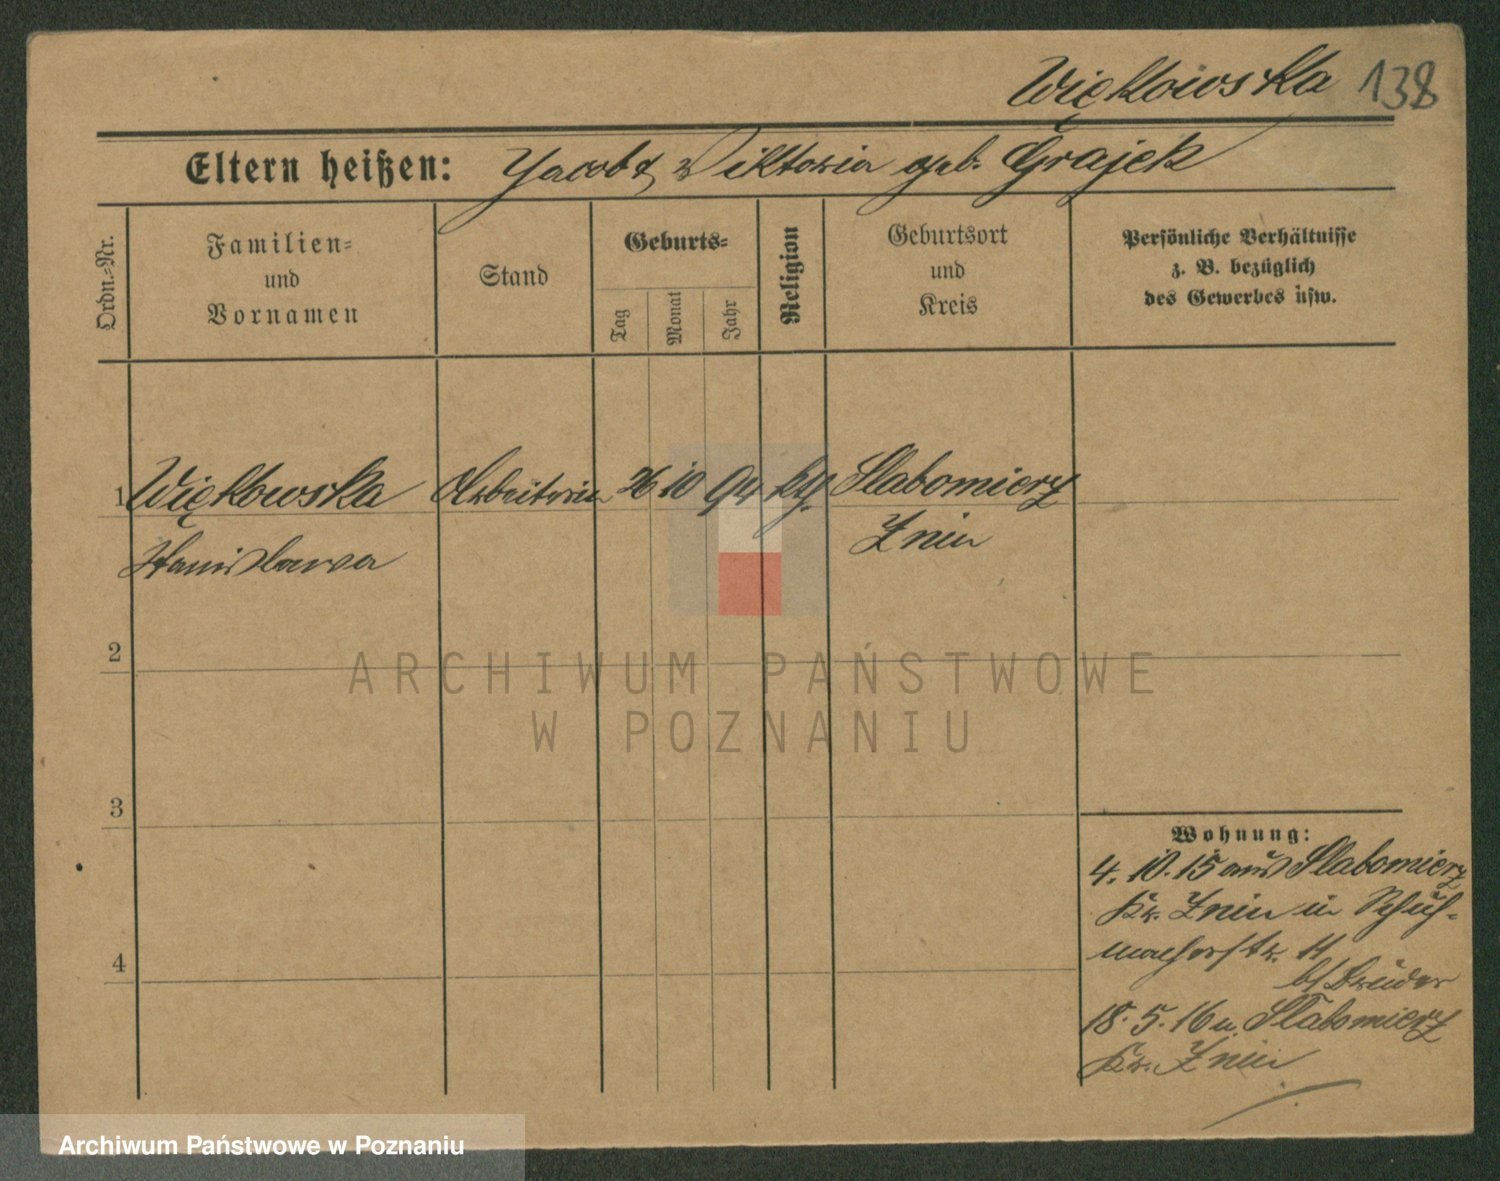 Więkowska 138
Eltern heißen: Jacob & Wiktoria geb. Grajek
Ordn.-Nr.
Familien-
und
Vornamen
Stand
Geburts-
Tag
Monat
Jahr
Religion
Geburtsort
und
Kreis
Persönliche Verhältnisse
z. B. bezüglich
des Gewerbes usw.
1 Więkowska Arbeiterin 26 10 94 kt. Slabomierz
Stanislawa Znin
2
3
4
Wohnung:
4. 10. 15 aus Slabomierz
Kr. Znin in Schuh-
macherstr. 11
b/ Bruder
18. 5. 16 n. Slabomierz
Kr. Znin
ARCHIWUM PAŃSTWOWE
W POZNANIU
Archiwum Państwowe w Poznaniu